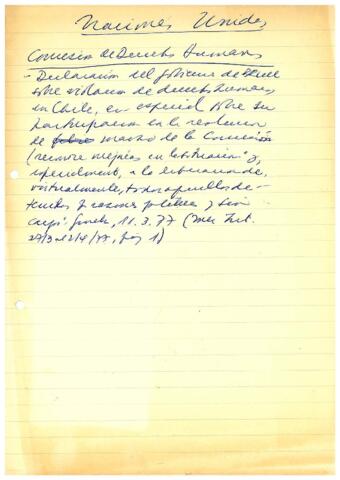 Naciones Unidas
Comisión de Derechos Humanos
- Declaración del gobierno de
sobre violación de derechos humanos
en Chile, en especial sobre su
participación en la resolución
de marzo de la Comisión
(reconoce mejorías en la situación y,
especialmente, a la liberación de,
virtualmente, todos aquellos de-
tenidos por razones políticas y sin
cargo. 11.3.77 (
27/3 - 12/4/77, pág 1)